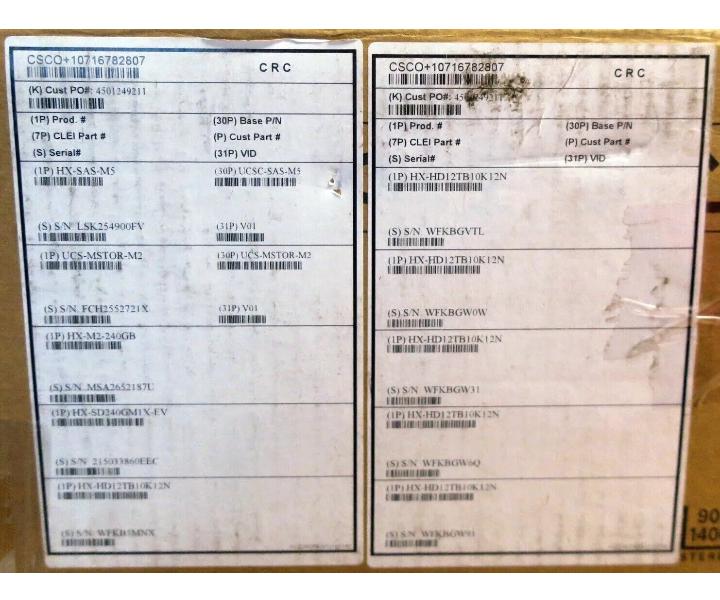 CSCO+10716782807
CRC
(K) Cust PO#: 4501249211
(1P) Prod. # (30P) Base P/N
(7P) CLEI Part # (P) Cust Part #
(S) Serial# (31P) VID
(1P) HX-SAS-M5 (30P) UCSC-SAS-M5
(S) S/N LSK254900FV (31P) V01
(1P) UCS-MSTOR-M2 (30P) UCS-MSTOR-M2
(S) S/N FCH2552721X (31P) V01
(1P) HX-M2-240GB
(S) S/N MSA2652187U
(1P) HX-SD240GM1X-EV
(S) S/N 215033860EEC
(1P) HX-HD12TB10K12N
(S) S/N WFKB3MNX
CSCO+10716782807
CRC
(K) Cust PO#: 4501249211
(1P) Prod. # (30P) Base P/N
(7P) CLEI Part # (P) Cust Part #
(S) Serial# (31P) VID
(1P) HX-HD12TB10K12N
(S) S/N WFKBGVTL
(1P) HX-HD12TB10K12N
(S) S/N WFKBGW0W
(1P) HX-HD12TB10K12N
(S) S/N WFKBGW31
(1P) HX-HD12TB10K12N
(S) S/N WFKBGW6Q
(1P) HX-HD12TB10K12N
(S) S/N
90
140